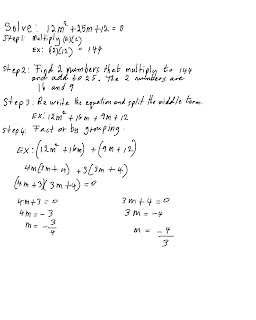 Solve: 12m² + 25m + 12 = 0
Step1: Multiply (a)(c)
Ex: (12)(12) = 144
Step2: Find 2 numbers that multiply to 144
and add to 25. The 2 numbers are
16 and 9
Step 3: Rewrite the equation and split the middle term.
Ex: 12m² + 16m + 9m + 12
Step 4: Factor by grouping.
Ex: (12m² + 16m) + (9m + 12)
4m(3m + 4) + 3(3m + 4)
(4m + 3)(3m + 4) = 0
4m + 3 = 0 3m + 4 = 0
4m = -3 3m = -4
m = -3/4 m = -4/3